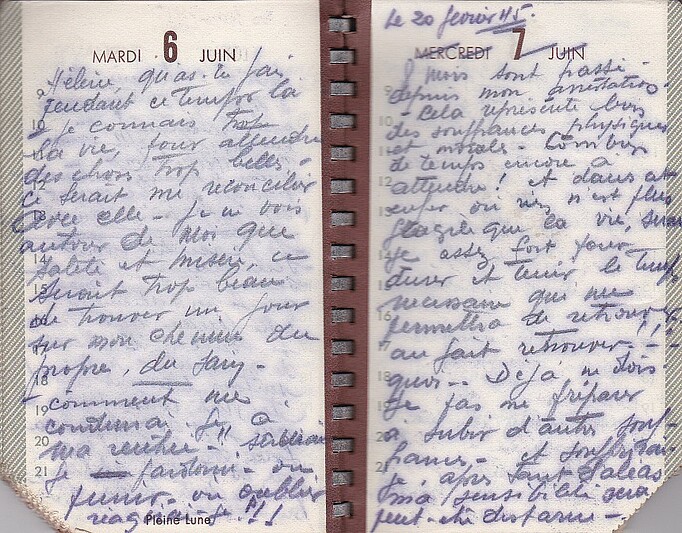 MARDI 6 JUIN
9 Hélène, qu'as-tu fait
pendant ce temps la
10 je connais trop
la vie, pour attendre
des choses trop belles -
12 ce serait me réconcilier
13 avec elle - je ne vois
autour de moi que
14 saleté et misère, ce
15 serait trop beau
16 de trouver un jour
sur mon chemin du
propre, du sain -
18
19 comment me
20 ma rentrée - !!
21 je pardonner - ou
punir - ou oublier
réagirai-je !!!
Pleine Lune
Le 20 fevrier 45.
MERCREDI 7 JUIN
8 mois sont passé
9 depuis mon arrestation
10 - Cela représente bien
des souffrances physiques
11 et morales - Combien
de temps encore à
12 attendre ! et dans cet
13 enfer où rien n'est plus
fragile que la vie, serai
14 je assez fort pour
durer et tenir le temps
nécessaire qui me
16 permettra de retrouver !!
au fait retrouver - - -
18 quoi - - Déjà ne dois
19 je pas me préparer
20 à subir d'autres souf-
frances - et
21 je, après tant d'aléas
ma sensibilité sera
peut-être disparue -